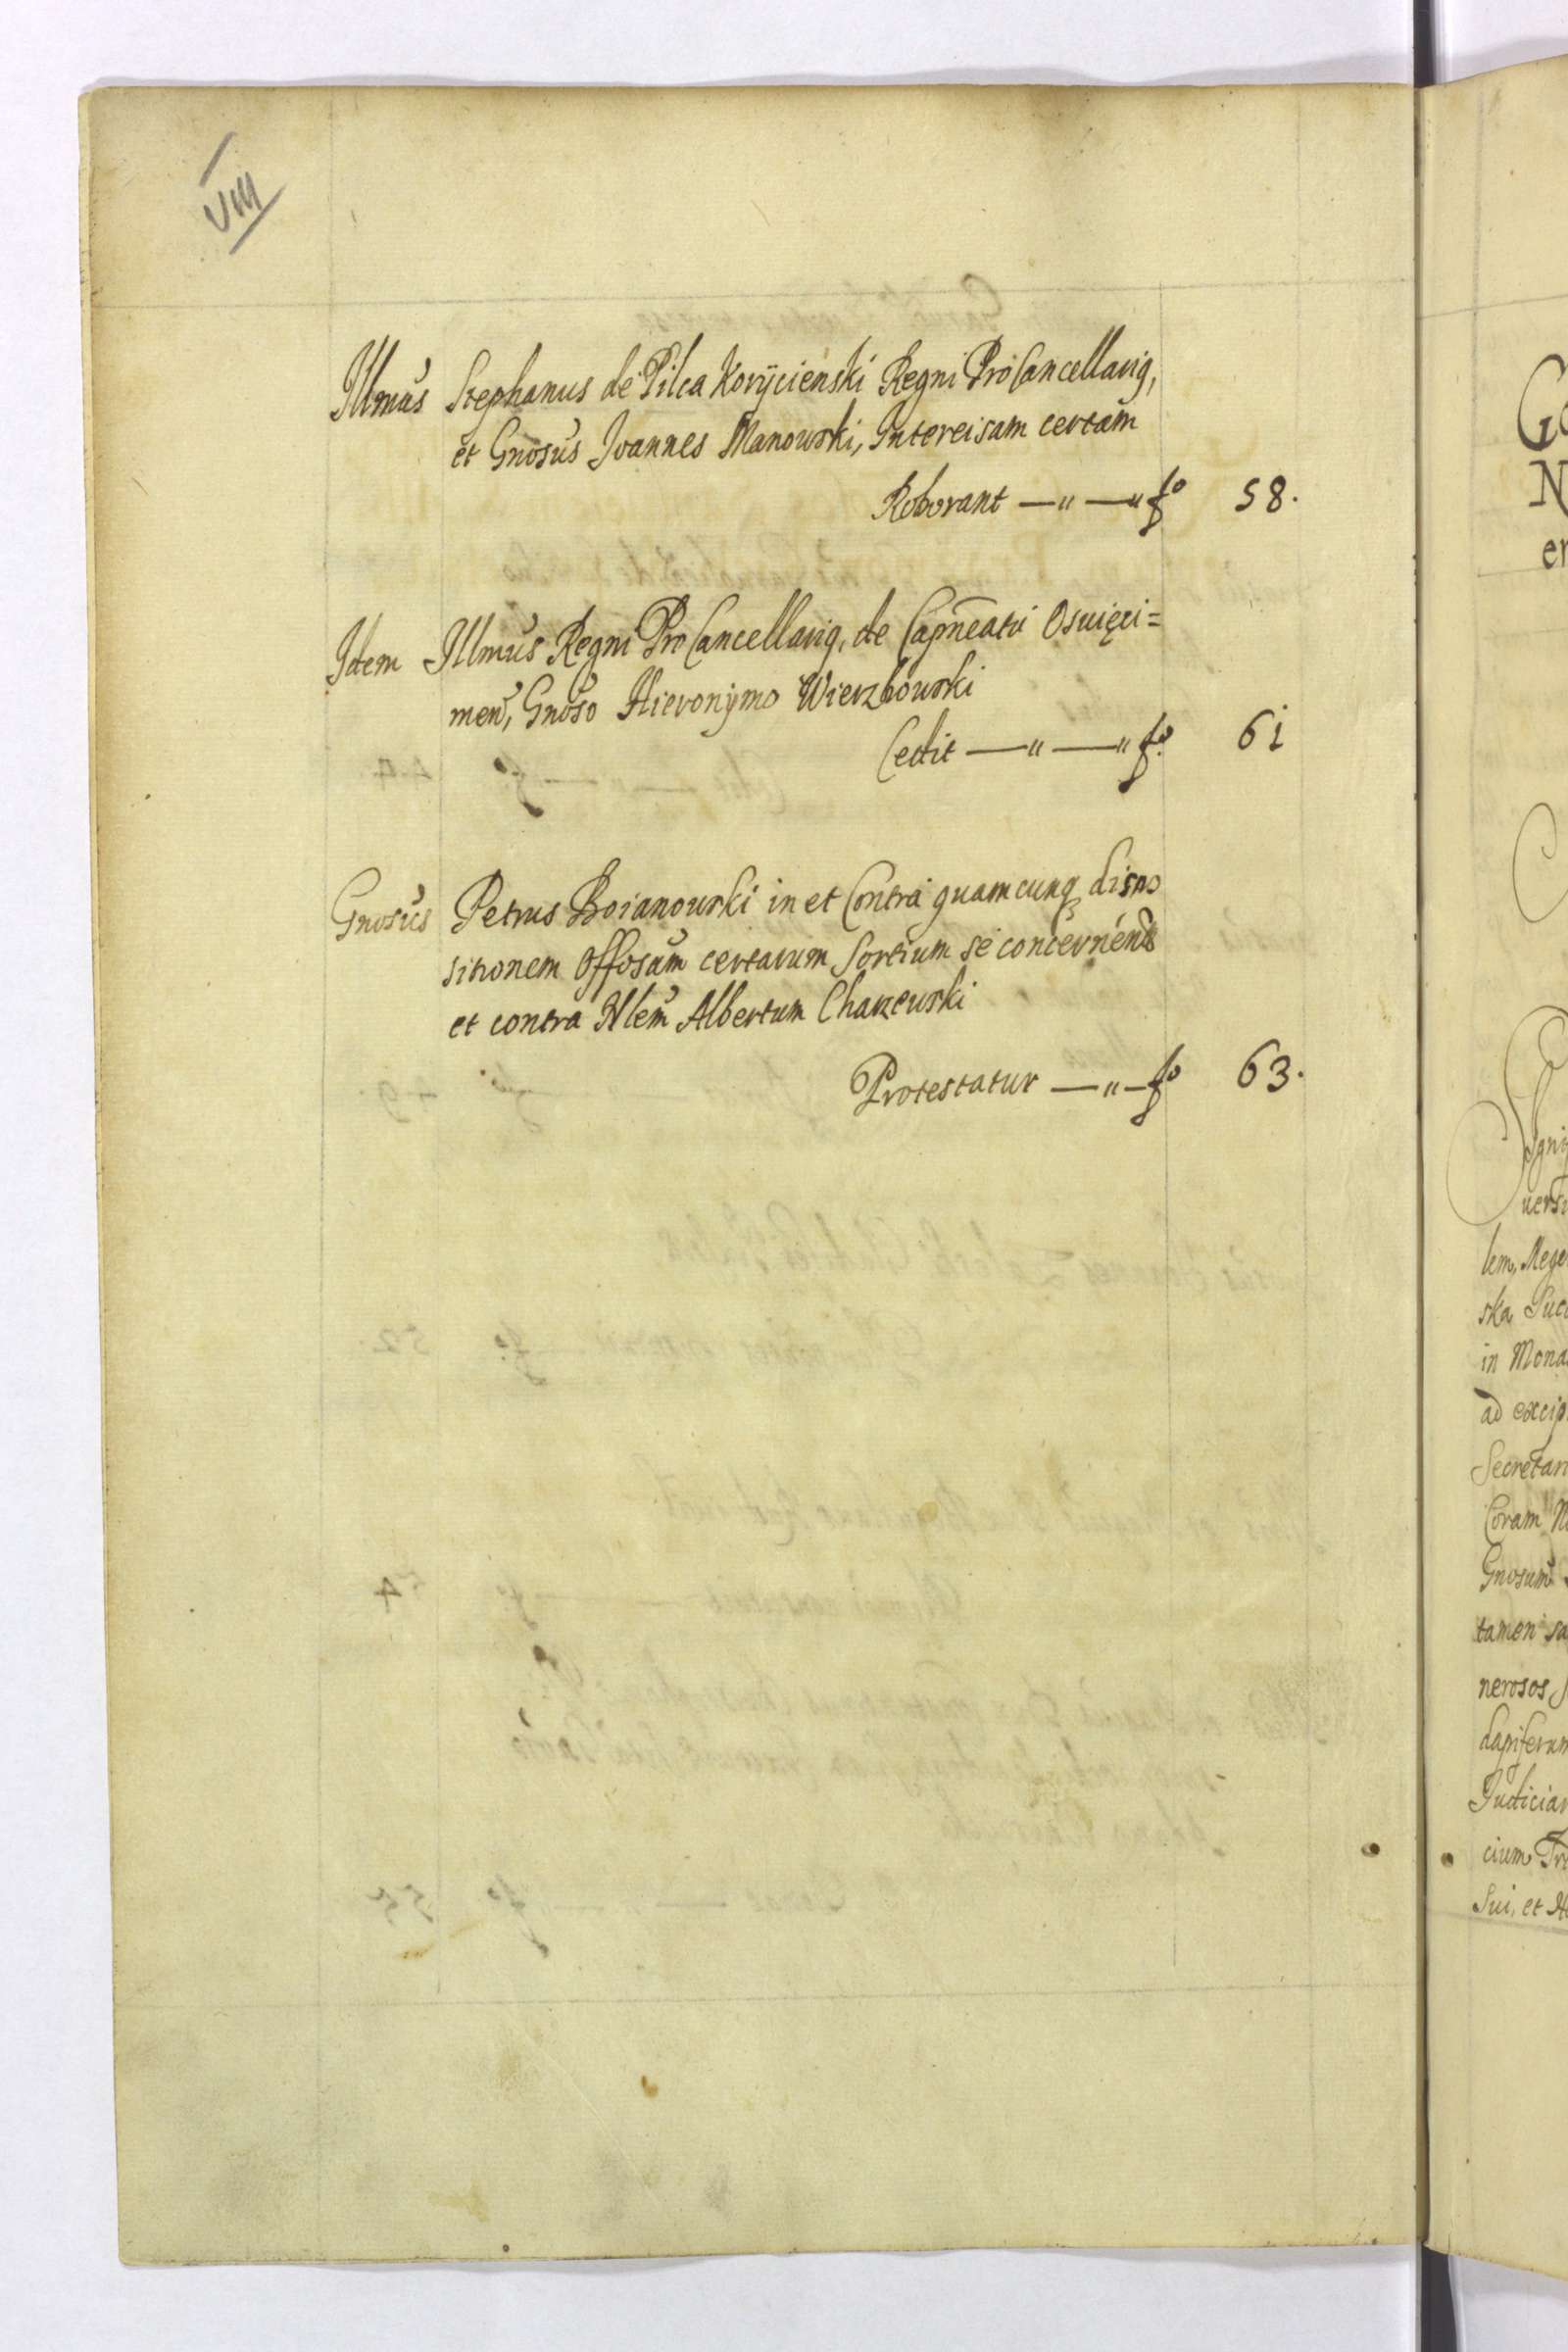 VIII
Illmus Stephanus de Pilca Korÿcienski Regni ProCancellariq,
et Gnosus Joannes Manowski, Intercisam certam
Roborant —"—" fo 58.
Idem Illmus Regni ProCancellariq, de Capneatu Osuięci=
men, Gnoso Hieronÿmo Wierzbowski
Cedit —"—" fo. 61
Gnosus Petrus Boianowski in et Contra quamcunq dispo
sitionem Offosam certarum Sortium se concernen
et contra Nlem Albertum Charzewski
Protestatur —"— fo 63.
G
N
er
uers
lem, Mege
ska Succ
in Mona
ad excip
Secretari
Coram N
Gnosum
tamen sa
nerosos
dapiferum
Judiciar
cium Tr
Sui, et H